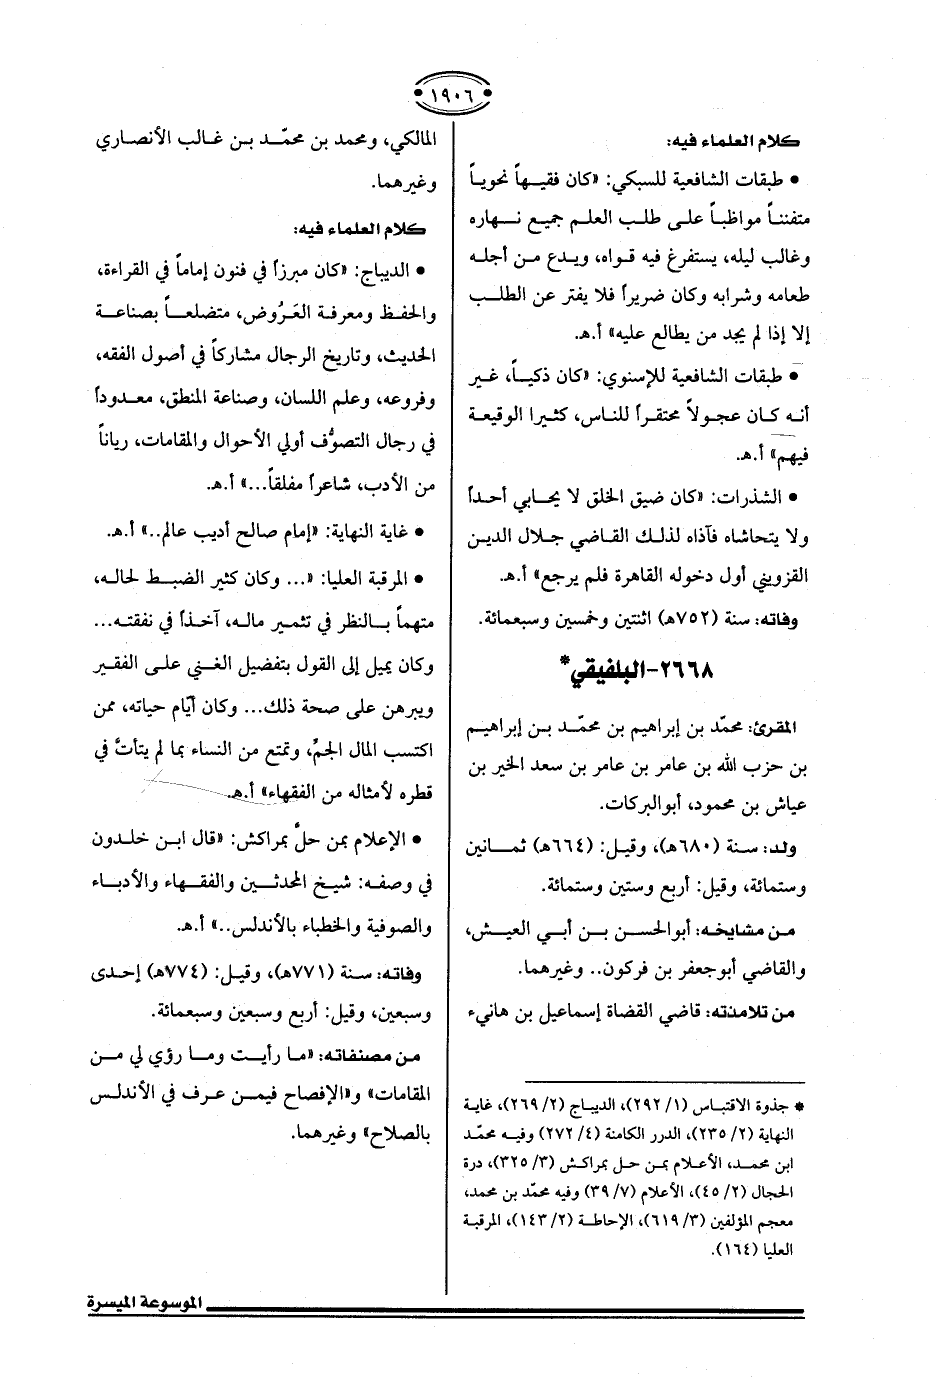 ١٩٠٦
كلام العلماء فيه:
• طبقات الشافعية للسبكي: «كان فقيهاً نحوياً
متفنناً مواظباً على طلب العلم جميع نهاره
وغالب ليله، يستفرغ فيه قواه، ويدع من أجله
طعامه وشرابه وكان ضريراً فلا يفتر عن الطلب
إلا إذا لم يجد من يطالع عليه» أ.هـ.
• طبقات الشافعية للإسنوي: «كان ذكياً، غير
أنه كان عجولاً محتقراً للناس، كثيرا الوقيعة
فيهم» أ.هـ.
• الشذرات: «كان ضيق الخلق لا يحابي أحداً
ولا يتحاشاه فآذاه لذلك القاضي جلال الدين
القزويني أول دخوله القاهرة فلم يرجع» أ.هـ.
وفاته: سنة (٧٥٢هـ) اثنتين وخمسين وسبعمائة.
٢٦٦٨-البلفيقي*
المقرئ: محمّد بن إبراهيم بن محمّد بن إبراهيم
بن حزب الله بن عامر بن عامر بن سعد الخير بن
عياش بن محمود، أبوالبركات.
ولد: سنة (٦٨٠هـ)، وقيل: (٦٦٤هـ) ثمانين
وستمائة، وقيل: أربع وستين وستمائة.
من مشايخه: أبوالحسن بن أبي العيش،
والقاضي أبوجعفر بن فركون.. وغيرهما.
من تلامذته: قاضي القضاة إسماعيل بن هانيء
* جذوة الاقتباس (١/ ٢٩٢)، الديباج (٢/ ٢٦٩)، غاية
النهاية (٢/ ٢٣٥)، الدرر الكامنة (٤/ ٢٧٢) وفيه محمّد
ابن محمد، الأعلام بمن حل بمراكش (٣/ ٣٢٥)، درة
الحجال (٢/ ٤٥)، الأعلام (٧/ ٣٩) وفيه محمّد بن محمد،
معجم المؤلفين (٣/ ٦١٩)، الإحاطة (٢/ ١٤٣)، المرقبة
العليا (١٦٤).
المالكي، ومحمد بن محمّد بن غالب الأنصاري
وغيرهما.
كلام العلماء فيه:
• الديباج: «كان مبرزاً في فنون إماماً في القراءة،
والحفظ ومعرفة العَرُوض، متضلعاً بصناعة
الحديث، وتاريخ الرجال مشاركاً في أصول الفقه،
وفروعه، وعلم اللسان، وصناعة المنطق، معدوداً
في رجال التصوُّف أولي الأحوال والمقامات، رياناً
من الأدب، شاعراً مفلقاً...» أ.هـ.
• غاية النهاية: «إمام صالح أديب عالم..» أ.هـ.
• المرقبة العليا: «... وكان كثير الضبط لحاله،
متهماً بالنظر في تثمير ماله، آخذاً في نفقته...
وكان يميل إلى القول بتفضيل الغني على الفقير
ويبرهن على صحة ذلك... وكان أيّام حياته، ممن
اكتسب المال الجمّ، وتمتع من النساء بما لم يتأتَّ في
قطره لأمثاله من الفقهاء» أ.هـ.
• الإعلام بمن حلّ بمراكش: «قال ابن خلدون
في وصفه: شيخ المحدثين والفقهاء والأدباء
والصوفية والخطباء بالأندلس..» أ.هـ.
وفاته: سنة (٧٧١هـ)، وقيل: (٧٧٤هـ) إحدى
وسبعين، وقيل: أربع وسبعين وسبعمائة.
من مصنفاته: «ما رأيت وما رؤي لي من
المقامات» و«الإفصاح فيمن عرف في الأندلس
بالصلاح» وغيرهما.
الموسوعة الميسرة